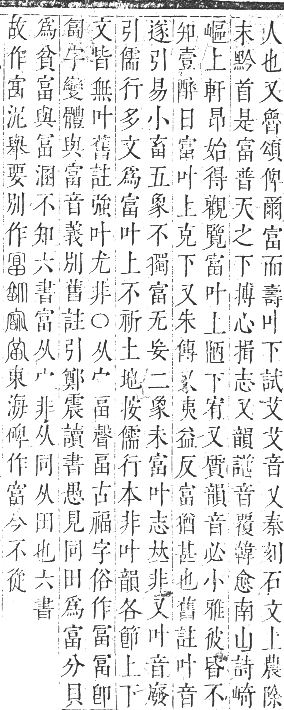 人也又魯頌俾爾富而壽叶下試艾艾音乂秦刻石文上農除
末黔首是富普天之下摶心揖志又韻譜音覆韓愈南山詩崎
嶇上軒昂始得觀覽富叶上陋下宥又贋韻音必小雅彼昏不
知壹醉日富叶上克下又朱傳叶夷益反富猶甚也舊註叶音
遂引易小畜五象不獨富无妄二象未富叶志𠀤非又叶音廢
引儒行多文爲富叶上不祈土地按儒行本非叶韻各節上下
文皆無叶舊註強叶尤非○从宀畐聲畐古福字俗作冨冨卽
畐字變體與富音義別舊註引鄭震讀書愚見同田爲富分貝
爲貧富與冨溷不知六書富从宀非从同从田也六書
故作寓泥舉要別作東海碑作富今不從